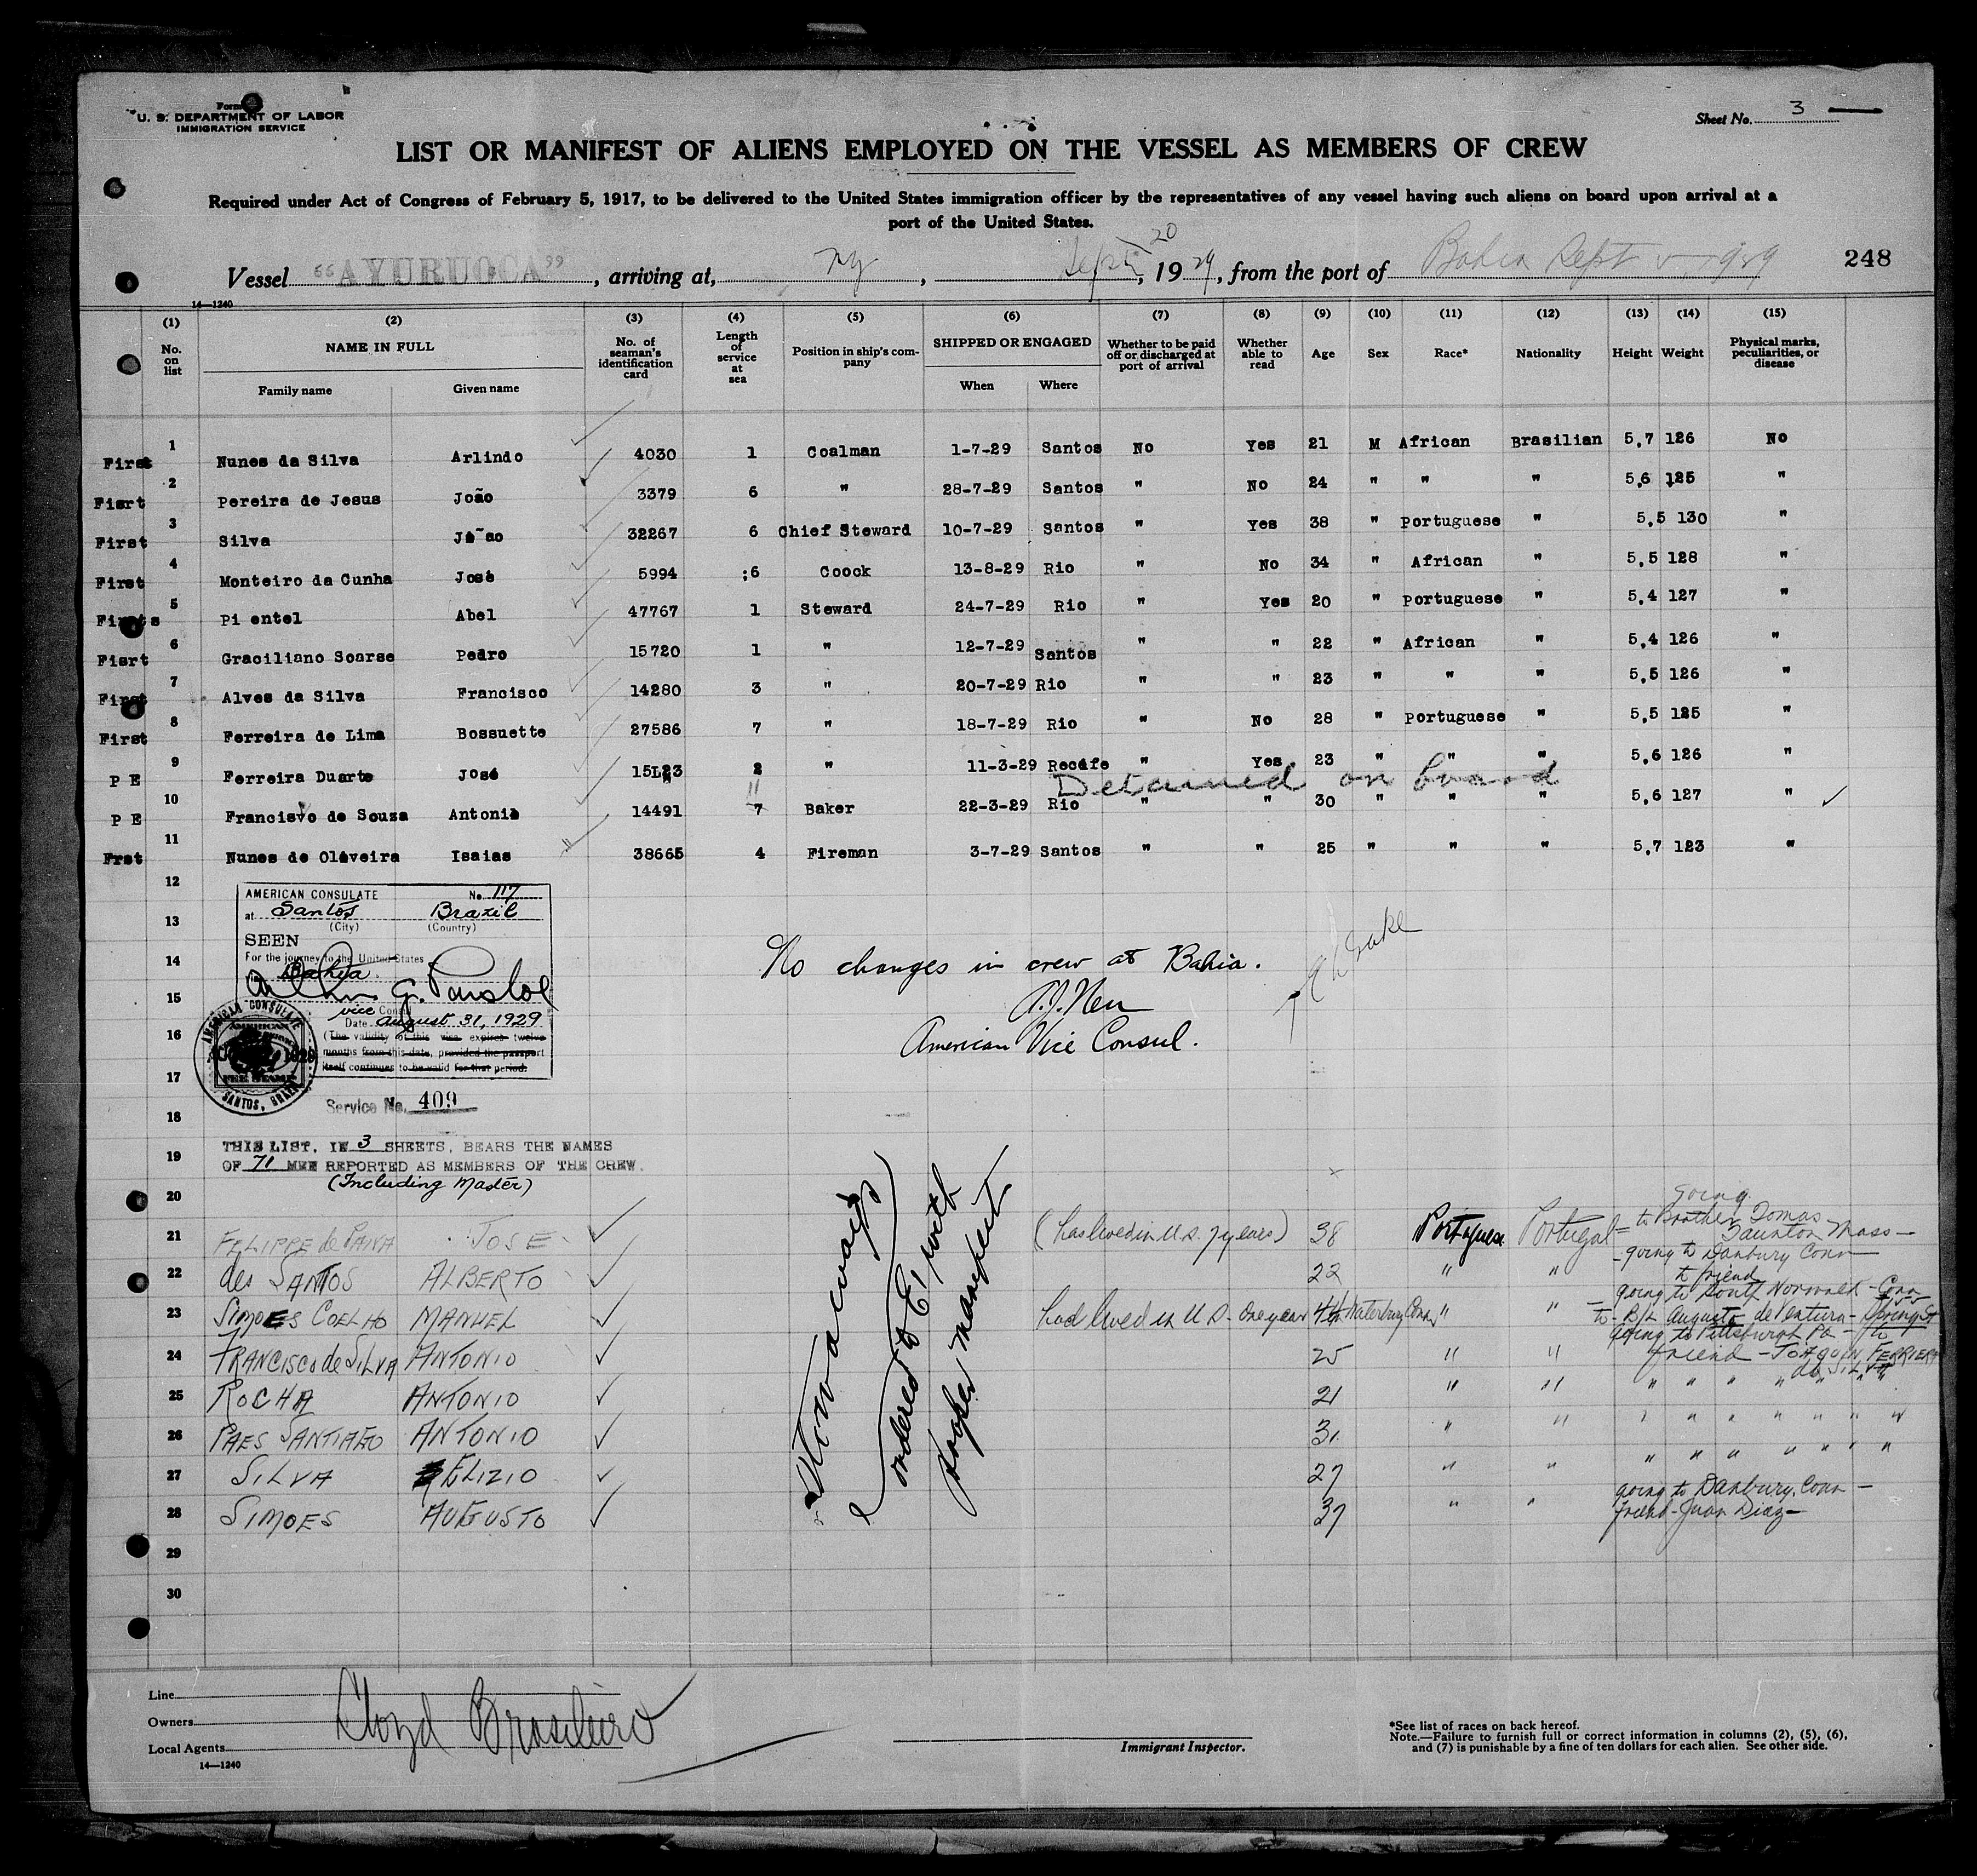 Form
U. S. DEPARTMENT OF LABOR
IMMIGRATION SERVICE
Sheet No. 3
LIST OR MANIFEST OF ALIENS EMPLOYED ON THE VESSEL AS MEMBERS OF CREW
Required under Act of Congress of February 5, 1917, to be delivered to the United States immigration officer by the representatives of any vessel having such aliens on board upon arrival at a
port of the United States.
Vessel "AYURUOCA", arriving at, NY, Sept 20, 1929, from the port of Bahia Sept 1929
248
14—1240
(1) (2) (3) (4) (5) (6) (7) (8) (9) (10) (11) (12) (13) (14) (15)
No. on list
NAME IN FULL
Family name Given name
No. of seaman's identification card
Length of service at sea
Position in ship's company
SHIPPED OR ENGAGED
When Where
Whether to be paid off or discharged at port of arrival
Whether able to read
Age Sex Race* Nationality Height Weight
Physical marks, peculiarities, or disease
First 1 Nunes da Silva Arlindo 4030 1 Coalman 1-7-29 Santos No Yes 21 M African Brasilian 5,7 126 No
Fisrt 2 Pereira de Jesus João 3379 6 " 28-7-29 Santos " No 24 " " " 5,6 125 "
First 3 Silva João 32267 6 Chief Steward 10-7-29 Santos " Yes 38 " Portuguese " 5,5 130 "
First 4 Monteiro da Cunha José 5994 ;6 Coock 13-8-29 Rio " No 34 " African " 5,5 128 "
Firsts 5 Pi entel Abel 47767 1 Steward 24-7-29 Rio " Yes 20 " Portuguese " 5,4 127 "
Fisrt 6 Graciliano Soarse Pedro 15720 1 " 12-7-29 Santos " " 22 " African " 5,4 126 "
First 7 Alves da Silva Francisco 14280 3 " 20-7-29 Rio " " 23 " " " 5,5 126 "
First 8 Ferreira de Lima Bossuette 27586 7 " 18-7-29 Rio " No 28 " Portuguese " 5,5 125 "
P E 9 Ferreira Duarte José 2 " 11-3-29 Recife " Yes 23 " " " 5,6 126 "
Detained on board
P E 10 Francisvo de Souza Antonio 14491 7 11 Baker 22-3-29 Rio " " 30 " " " 5,6 127 "
Frst 11 Nunes de Oliveira Isaias 38665 4 Fireman 3-7-29 Santos " " 25 " " " 5,7 123 "
12
13
14
15
16
17
18
19
20
AMERICAN CONSULATE No. 117
at Santos Brazil
(City) (Country)
SEEN
For the journey to the United States
via Bahia
vice Consul
Date August 31, 1929
(The validity of this visa expires twelve
months from this date, provided the passport
itself continues to be valid for that period.
AMERICAN CONSULATE
AMERICAN
1929
FEE STAMP
SANTOS, BRAZIL
Service No. 409
No changes in crew at Bahia.
American Vice Consul.
THIS LIST, IN 3 SHEETS, BEARS THE NAMES
OF 71 MEN REPORTED AS MEMBERS OF THE CREW.
(Including Master)
Stowaways
ordered to E I with
proper manifest
21 FELIPPE de PAIVA JOSE (has lived in U.S. 7 years) 38 Portuguese Portugal going to Brother Tomas Taunton Mass
22 des SANTOS ALBERTO 22 " " going to Danbury Conn to friend
23 SIMOES COELHO MANUEL had lived in U S - one year 44 Waterbury Conn " " going to South Norwalk - Conn
to B/L Augusto de Ventura - Spring St
24 FRANCISCO de SILVA ANTONIO 25 " " going to Pittsburgh Pa - to
friend - JOAQUIN FERRIERA da SILVA
25 ROCHA ANTONIO 21 " " " " " " " " "
26 PAES SANTIAGO ANTONIO 31 " " " " " " " " "
27 SILVA ELIZIO 27 " " " " " " " " "
28 SIMOES AUGUSTO 37 " " going to Danbury, Conn -
friend - Juan Diaz -
29
30
Line
Owners
Local Agents
Lloyd Brasileiro
14—1240
Immigrant Inspector.
*See list of races on back hereof.
Note.—Failure to furnish full or correct information in columns (2), (5), (6),
and (7) is punishable by a fine of ten dollars for each alien. See other side.